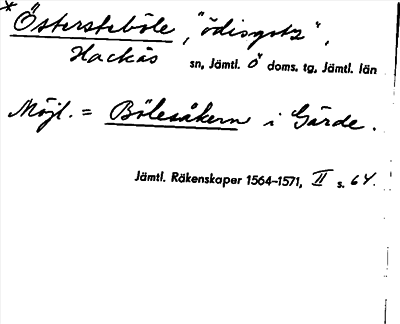 * Östersteböle, "ödisgotz",
Hackås sn, Jämtl. Ö doms. tg, Jämtl. län
Möjl. = Bölesåkern i Gärde.
Jämtl. Räkenskaper 1564–1571, II s. 64.